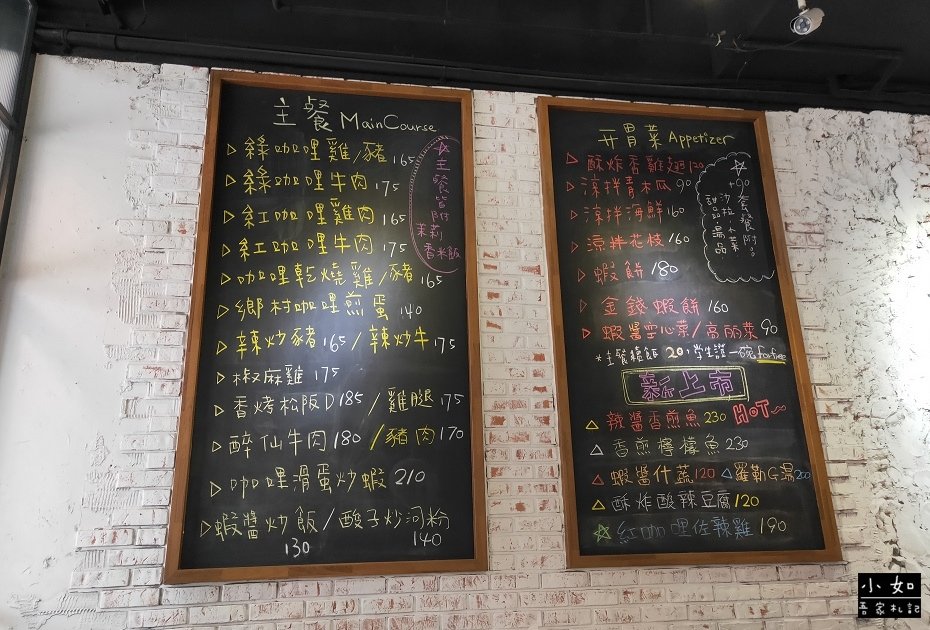 主餐 MainCourse
▷綠咖哩雞/豬 165
▷綠咖哩牛肉 175
▷紅咖哩雞肉 165
▷紅咖哩牛肉 175
▷咖哩乾燒雞/豬 165
▷鄉村咖哩煎蛋 140
▷辣炒豬165/辣炒牛175
▷椒麻雞 175
▷香烤松阪D185/雞腿175
▷醉仙牛肉180/豬肉170
▷咖哩滑蛋炒蝦 210
▷蝦醬炒飯/酸子炒河粉
130 140
☆主餐皆附
茉莉
香米飯
开胃菜 Appetizer
▷酥炸香雞翅120
▷涼拌青木瓜 90
▷涼拌海鮮160
▷涼拌花枝 160
▷蝦餅 180
▷金錢蝦餅 160
▷蝦醬空心菜/高丽菜 90
*主餐續飯 20,學生證一碗for free
☆
+90
套餐附
沙拉、小菜
甜品、湯品
新上市
△辣醬香煎魚230 HOT~
△香煎檸檬魚230
△蝦醬什蔬120 △羅勒G湯200
△酥炸酸辣豆腐120
☆紅咖哩佐辣雞 190
小如
吾家札記